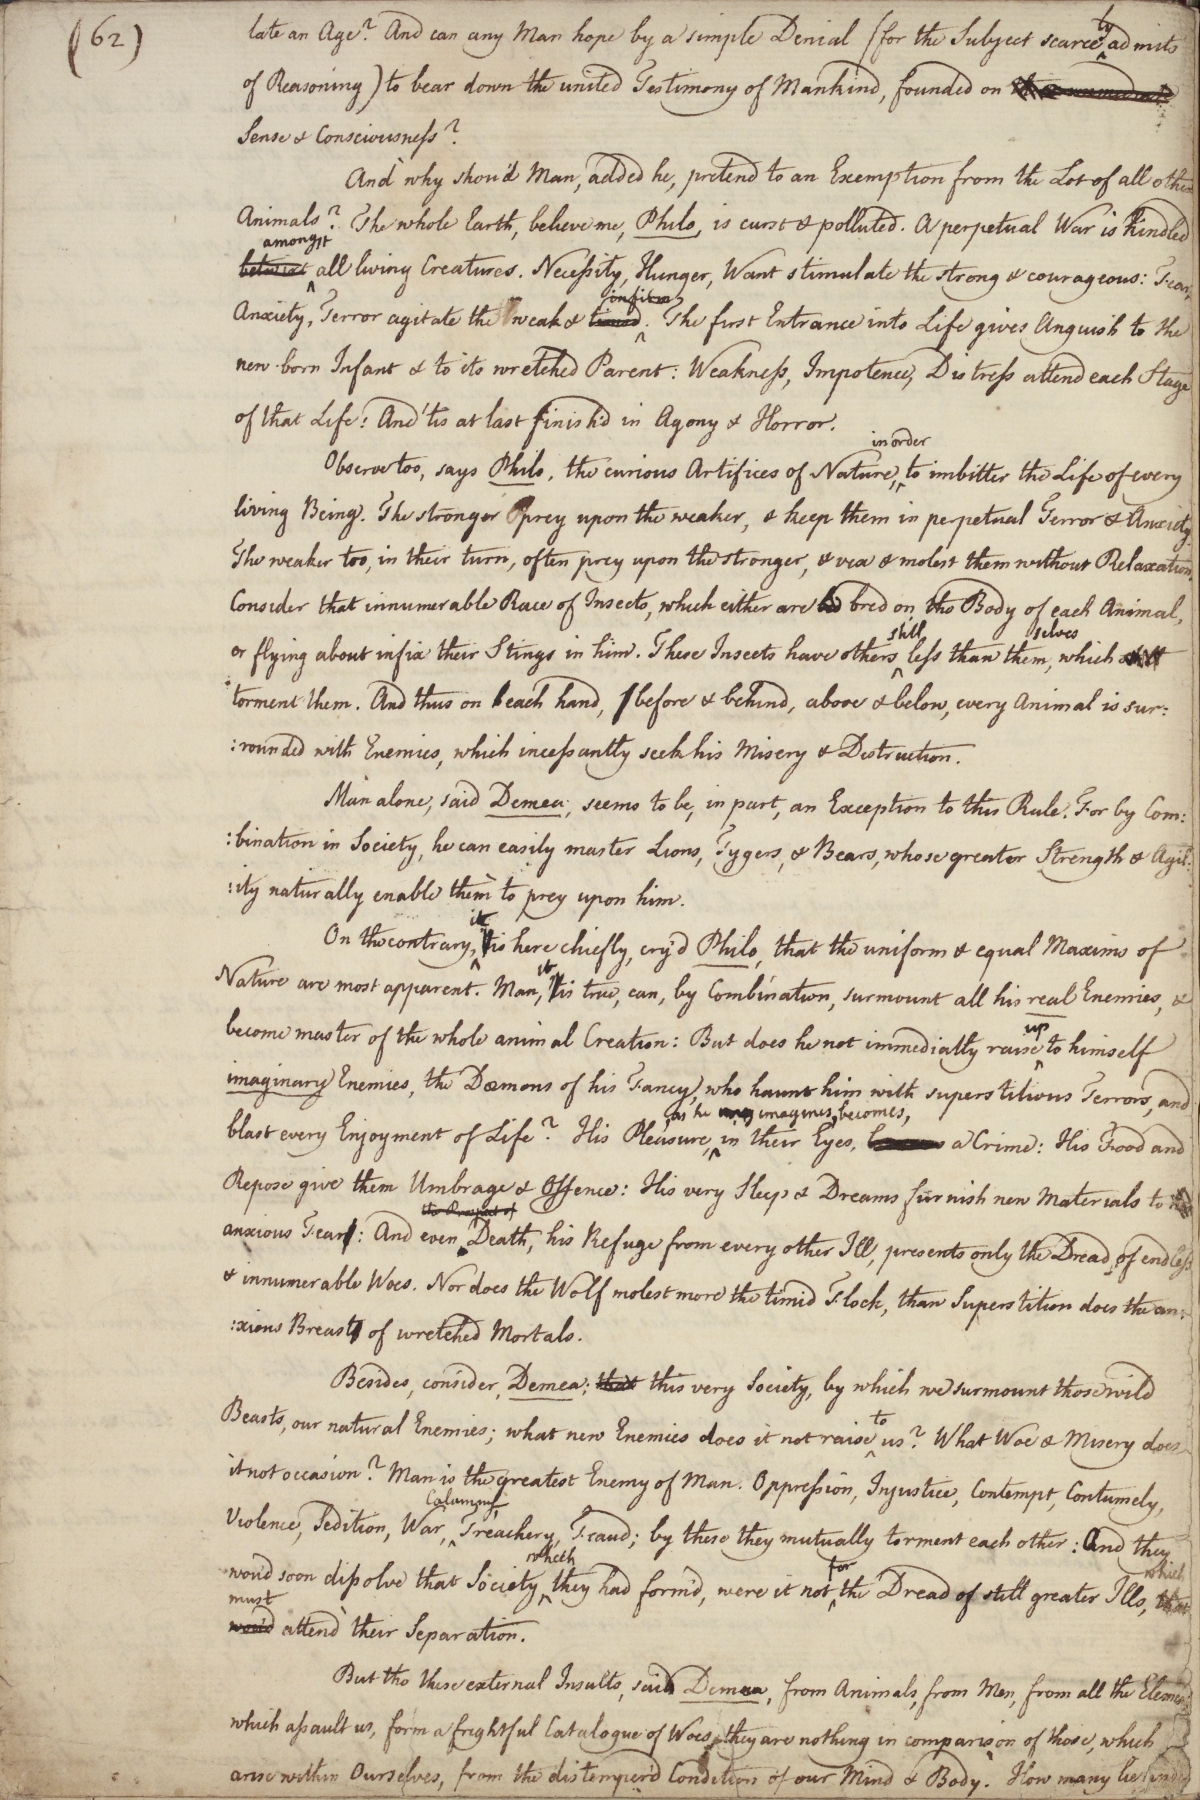 (62)
late an Age? And can any Man hope by a simple Denial (for the Subject scarcely admits
of Reasoning) to bear down the united Testimony of Mankind, founded on
Sense & Consciousness?
And why shou'd Man, added he, pretend to an Exemption from the Lot of all other
Animals? The whole Earth, believe me, Philo, is curst & polluted. A perpetual War is kindled
amongst
betwixt all living Creatures. Necessity, Hunger, Want stimulate the strong & courageous: Fear,
infirm
Anxiety, Terror agitate the weak & timid. The first Entrance into Life gives Anguish to the
new-born Infant & to its wretched Parent: Weakness, Impotence, Distress attend each Stage
of that Life: And 'tis at last finish'd in Agony & Horror.
in order
Observe too, says Philo, the curious Artifices of Nature, to imbitter the Life of every
living Being. The stronger prey upon the weaker, & keep them in perpetual Terror & Anxiety.
The weaker too, in their turn, often prey upon the stronger, & vex & molest them without Relaxation.
Consider that innumerable Race of Insects, which either are bred on the Body of each Animal,
still selves
or flying about infix their Stings in him. These Insects have others less than them, which still
torment them. And thus on each hand, before & behind, above & below, every Animal is sur:
:rounded with Enemies, which incessantly seek his Misery & Destruction.
Man alone, said Demea, seems to be, in part, an Exception to this Rule. For by Com:
:bination in Society, he can easily master Lions, Tygers, & Bears, whose greater Strength & Agil:
:ity naturally enable them to prey upon him.
it
On the contrary, 'tis here chiefly, cry'd Philo, that the uniform & equal Maxims of
it
Nature are most apparent. Man, 'tis true, can, by Combination, surmount all his real Enemies, &
up
become master of the whole animal Creation: But does he not immediatly raise to himself
imaginary Enemies, the Dæmons of his Fancy, who haunt him with superstitious Terrors, and
as he imagines, becomes,
blast every Enjoyment of Life? His Pleasure, in their Eyes, a Crime: His Food and
Repose give them Umbrage & Offence: His very Sleep & Dreams furnish new Materials to
the Prospect of
anxious Fear: And even Death, his Refuge from every other Ill, presents only the Dread of endless
& innumerable Woes. Nor does the Wolf molest more the timid Flock, than Superstition does the an:
:xious Breast of wretched Mortals.
Besides, consider, Demea; that this very Society, by which we surmount those wild
to
Beasts, our natural Enemies; what new Enemies does it not raise us? What Woe & Misery does
it not occasion? Man is the greatest Enemy of Man. Oppression, Injustice, Contempt, Contumely,
Calumny,
Violence, Sedition, War, Treachery, Fraud; by these they mutually torment each other: And they
which for which
wou'd soon dissolve that Society they had form'd, were it not the Dread of still greater Ills, that
must
wou'd attend their Separation.
But tho these external Insults, said Demea, from Animals, from Men, from all the Elements
which assault us, form a frightful Catalogue of Woes, they are nothing in comparison of those, which
arise within Ourselves, from the distemper'd Condition of our Mind & Body. How many lie under